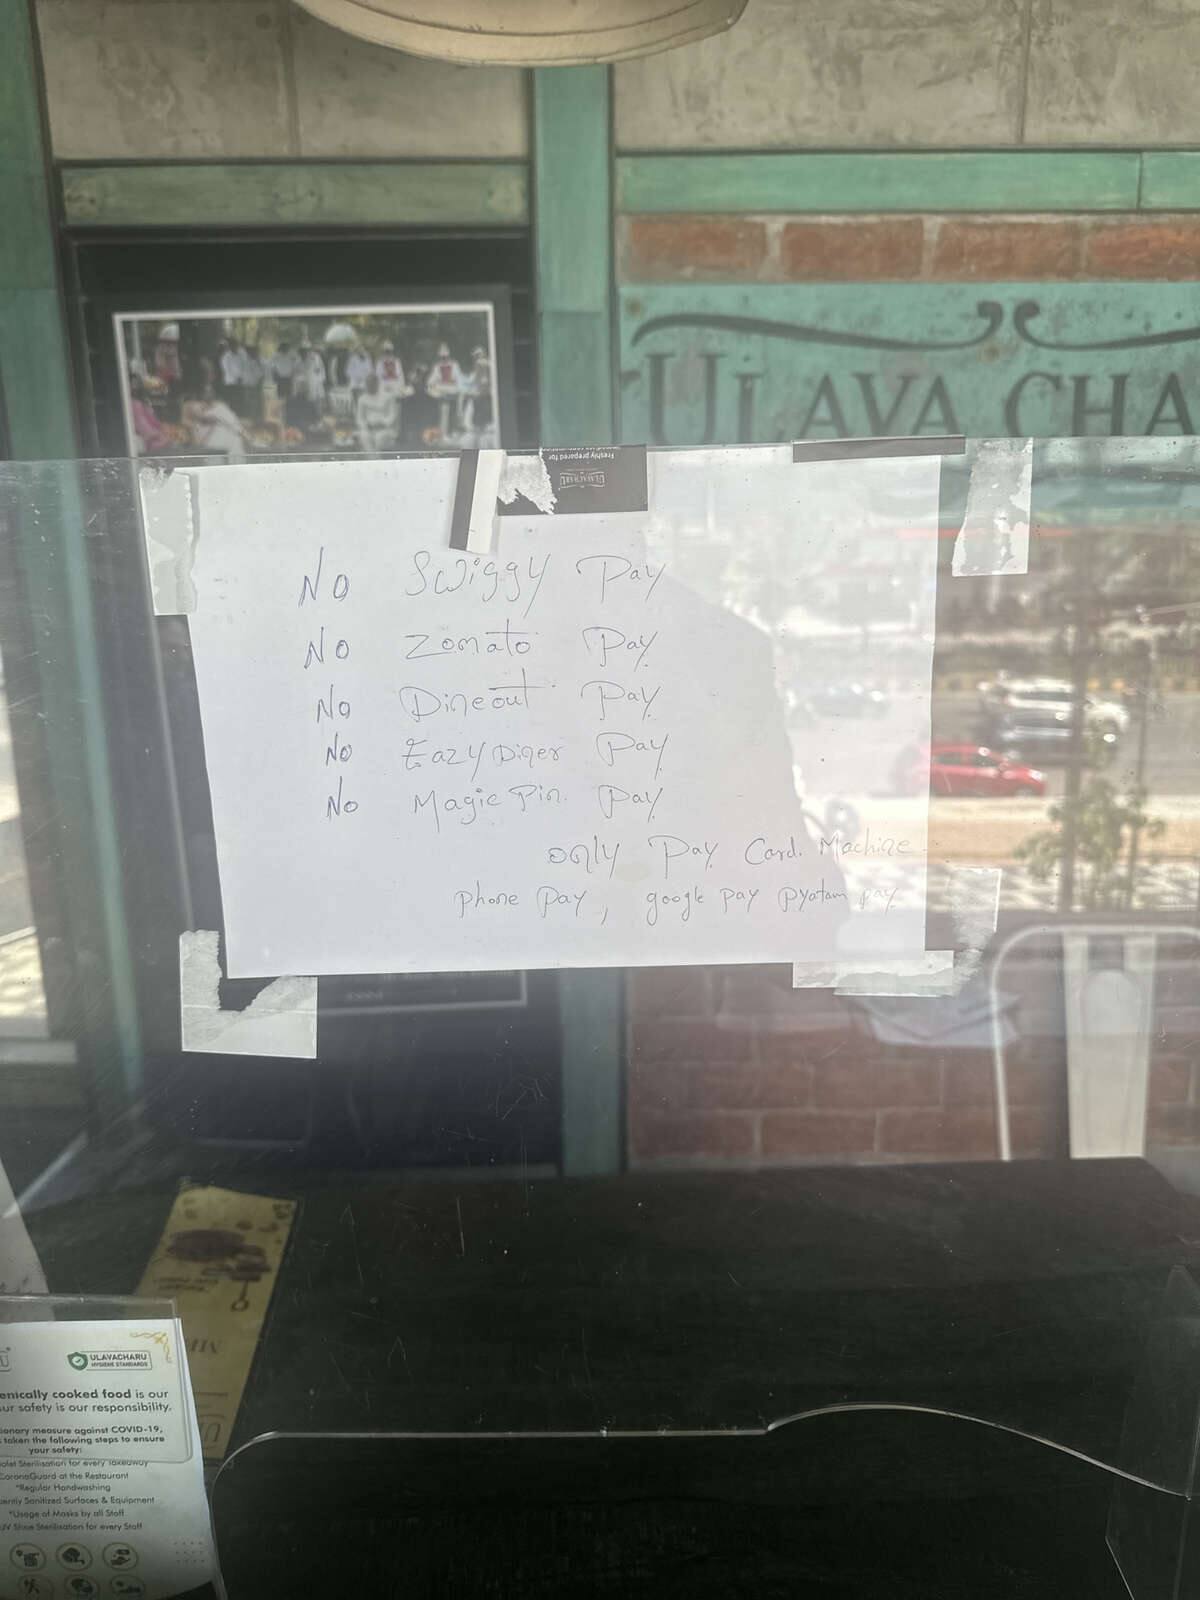 ULAVA CHA
Freshly prepared for
ULAVACHARU
No Swiggy Pay
No Zomato Pay
No Dineout Pay
No EazyDiner Pay
No Magic Pin. Pay
only Pay Card. Machine.
phone pay, google pay pyatam pay
ULAVACHARU
HYGIENE STANDARDS
enically cooked food is our
ur safety is our responsibility.
ionary measure against COVID-19,
s taken the following steps to ensure
your safety:
olet Sterilisation for every Takeaway
CoronaGuard at the Restaurant
*Regular Handwashing
ently Sanitized Surfaces & Equipment
*Usage of Masks by all Staff
UV Shoe Sterilisation for every Staff